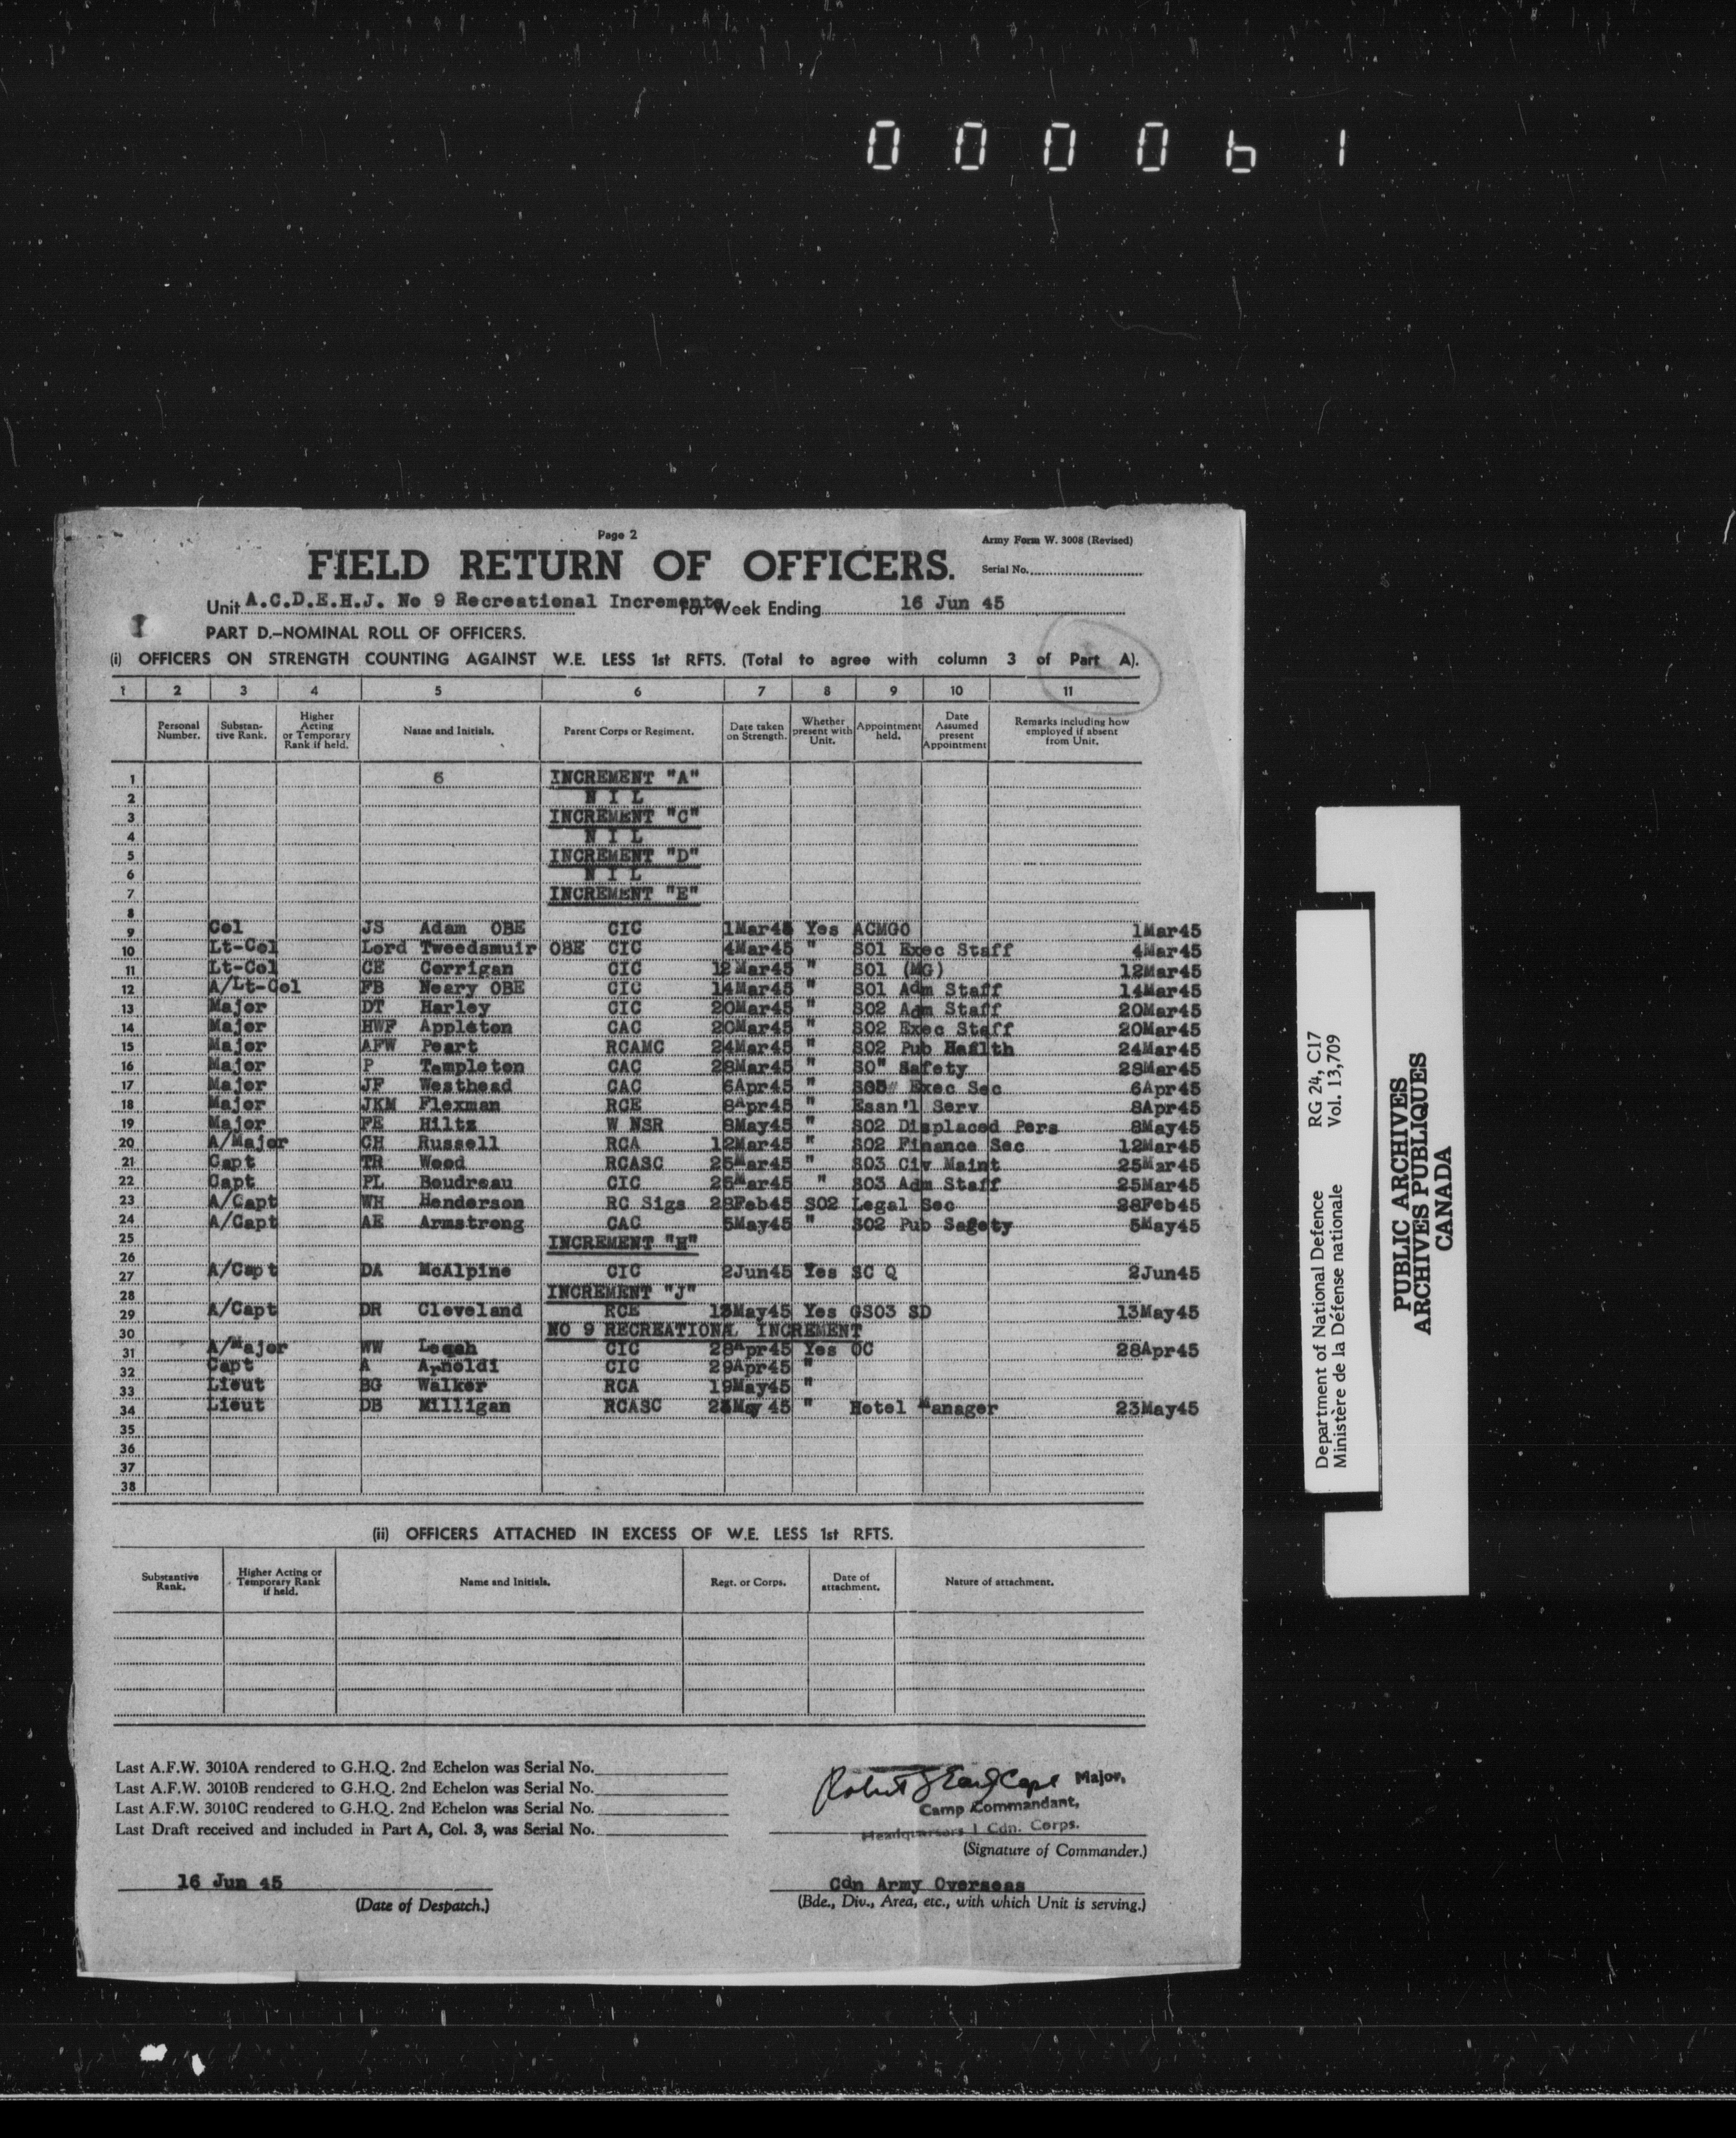 000061
Page 2
Army Form W. 3008 (Revised)
FIELD RETURN OF OFFICERS.
Serial No.
Unit A.C.D.E.H.J. No 9 Recreational Increments For Week Ending 16 Jun 45
PART D.–NOMINAL ROLL OF OFFICERS.
(i) OFFICERS ON STRENGTH COUNTING AGAINST W.E. LESS 1st RFTS. (Total to agree with column 3 of Part A).
1 2 3 4 5 6 7 8 9 10 11
Personal Number. Substan-tive Rank. Higher Acting or Temporary Rank if held. Name and Initials. Parent Corps or Regiment. Date taken on Strength. Whether present with Unit. Appointment held. Date Assumed present Appointment Remarks including how employed if absent from Unit.
1 6 INCREMENT "A"
2 N I L
3 INCREMENT "C"
4 N I L
5 INCREMENT "D"
6 N I L
7 INCREMENT "E"
8
9 Col JS Adam OBE CIC 1Mar45 Yes ACMGO 1Mar45
10 Lt-Col Lord Tweedsmuir OBE CIC 4Mar45 " SO1 Exec Staff 4Mar45
11 Lt-Col CE Corrigan CIC 12Mar45 " SO1 (MG) 12Mar45
12 A/Lt-Col FB Neary OBE CIC 14Mar45 " SO1 Adm Staff 14Mar45
13 Major DT Harley CIC 20Mar45 " SO2 Adm Staff 20Mar45
14 Major HWF Appleton CAC 20Mar45 " SO2 Exec Staff 20Mar45
15 Major AFW Peart RCAMC 24Mar45 " SO2 Pub 24Mar45
16 Major P Templeton CAC 28Mar45 " SO" Safety 28Mar45
17 Major JF Westhead CAC 6Apr45 " Exec Sec 6Apr45
18 Major JKM Flexman RCE 8Apr45 " Essn'l Serv 8Apr45
19 Major FE Hiltz W NSR 8May45 " SO2 Displaced Pers 8May45
20 A/Major CH Russell RCA 12Mar45 " SO2 Finance Sec 12Mar45
21 Capt TR Wood RCASC 25Mar45 " SO3 Civ Maint 25Mar45
22 Capt PL Boudreau CIC 25Mar45 " SO3 Adm Staff 25Mar45
23 A/Capt WH Henderson RC Sigs 28Feb45 SO2 Legal Sec 28Feb45
24 A/Capt AE Armstrong CAC 5May45 " SO2 Pub Sagety 5May45
25 INCREMENT "H"
26
27 A/Capt DA McAlpine CIC 2Jun45 Yes SC Q 2Jun45
28 INCREMENT "J"
29 A/Capt DR Cleveland RCE 13May45 Yes GSO3 SD 13May45
30 NO 9 RECREATIONAL INCREMENT
31 A/Major WW CIC 28Apr45 Yes OC 28Apr45
32 Capt A Arnoldi CIC 29Apr45 "
33 Lieut BG Walker RCA 19May45 "
34 Lieut DB Milligan RCASC 23May 45 " Hotel Manager 23May45
35
36
37
38
(ii) OFFICERS ATTACHED IN EXCESS OF W.E. LESS 1st RFTS.
Substantive Rank. Higher Acting or Temporary Rank if held. Name and Initials. Regt. or Corps. Date of attachment. Nature of attachment.
Last A.F.W. 3010A rendered to G.H.Q. 2nd Echelon was Serial No.
Last A.F.W. 3010B rendered to G.H.Q. 2nd Echelon was Serial No.
Last A.F.W. 3010C rendered to G.H.Q. 2nd Echelon was Serial No.
Last Draft received and included in Part A, Col. 3, was Serial No.
Major,
Camp Commandant,
Headquarters 1 Cdn. Corps.
(Signature of Commander.)
16 Jun 45
(Date of Despatch.)
Cdn Army Overseas
(Bde., Div., Area, etc., with which Unit is serving.)
Department of National Defence RG 24, C17
Ministère de la Défense nationale Vol. 13,709
PUBLIC ARCHIVES
ARCHIVES PUBLIQUES
CANADA